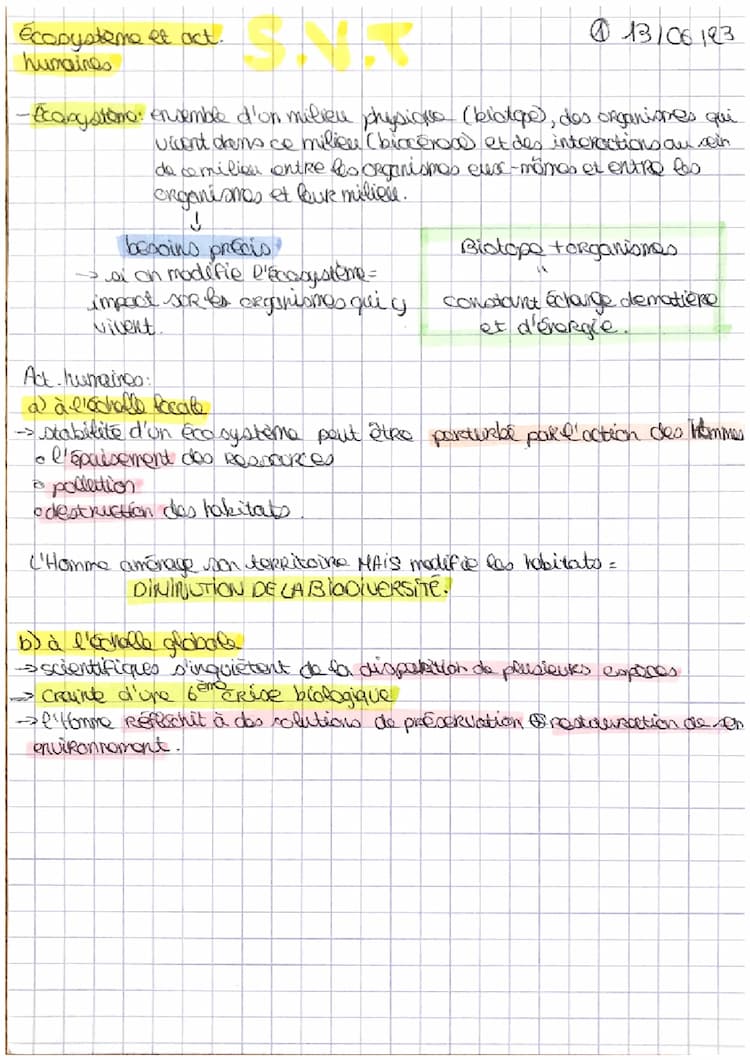 Écosystème et act. S.V.T ① 13/06/23
humaines
- Écosystème: ensemble d'un milieu physique (biotope), des organismes qui
vivent dans ce milieu (biocénose) et des interactions au sein
de ce milieu entre les organismes eux-mêmes et entre les
organismes et leur milieu.
↓
besoins précis
→ si on modifie l'écosystème =
impact sur les organismes qui y
vivent.
Biotope + organismes
"
constant échange de matière
et d'énergie.
Act. humaines:
a) à l'échelle locale
→ stabilité d'un écosystème peut être perturbé par l'action des Hommes
o l'épuisement des ressources
o pollution
o destruction des habitats.
L'Homme aménage son territoire MAIS modifie les habitats =
DIMINUTION DE LA BIODIVERSITÉ.
b) à l'échelle globale
→ scientifiques s'inquiètent de la disparition de plusieurs espèces
→ crainte d'une 6ème crise biologique
→ l'Homme réfléchit à des solutions de préservation ⊕ restauration de son
environnement.